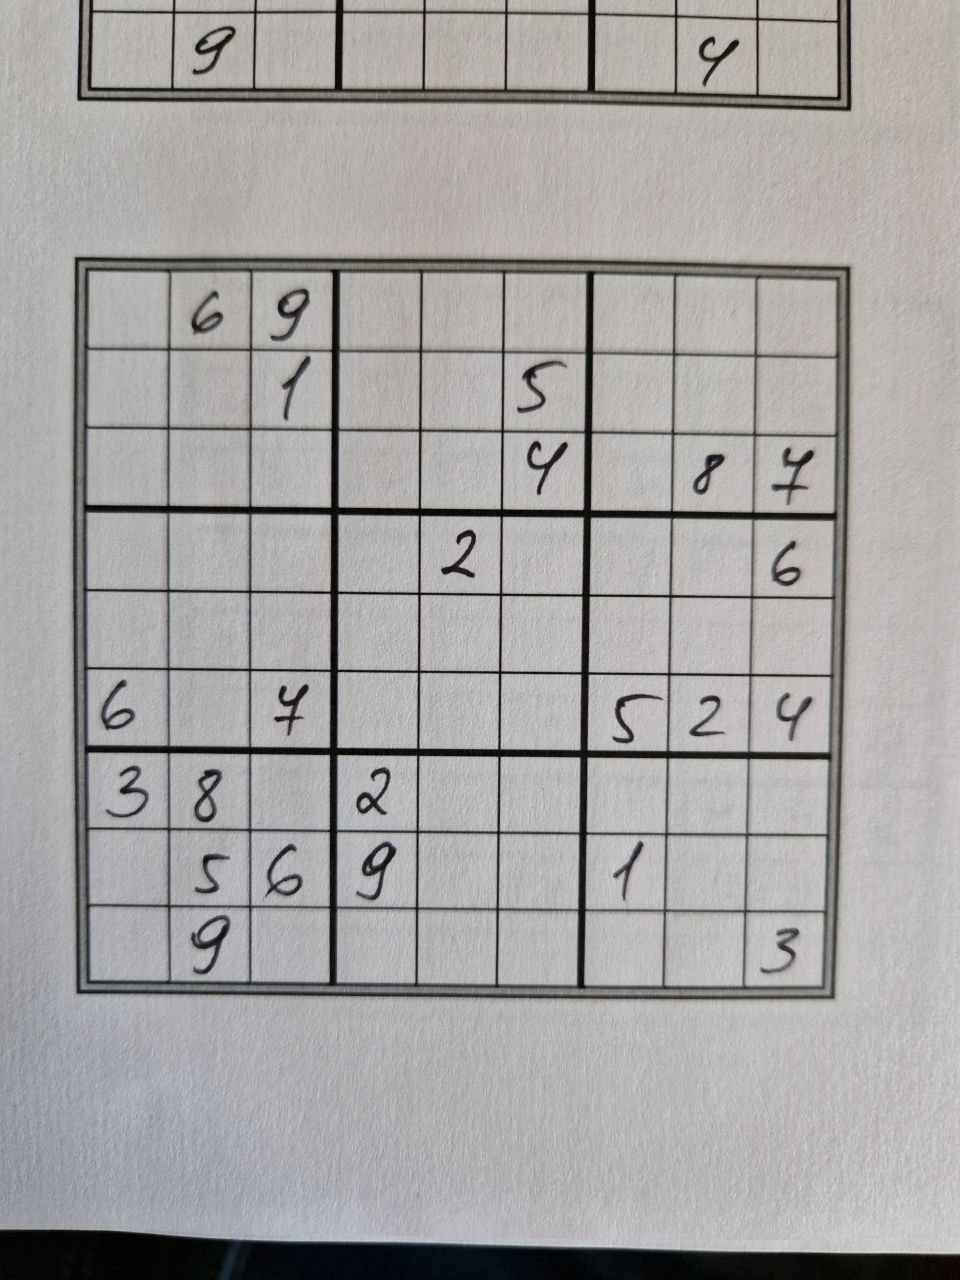 9 4
6 9
1 5
4 8 7
2 6
6 7 5 2 4
3 8 2
5 6 9 1
9 3